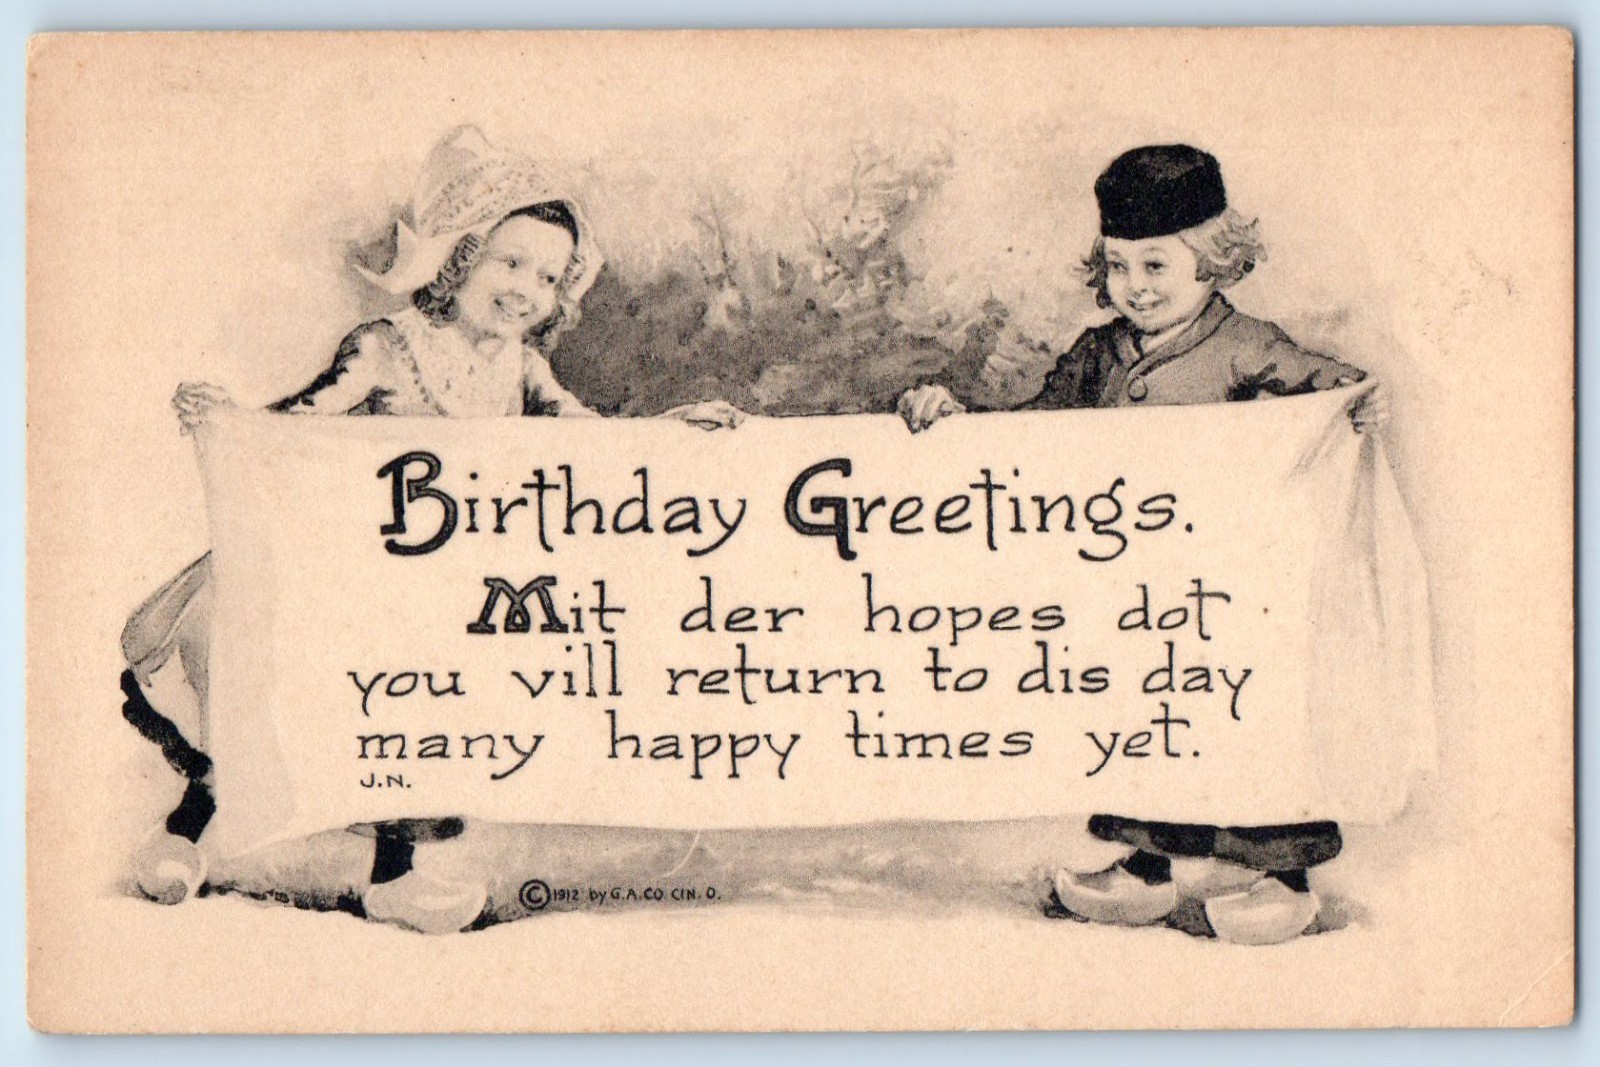 Birthday Greetings.
Mit der hopes dot
you vill return to dis day
many happy times yet.
J.N.
© 1912 by G.A.CO CIN. O.